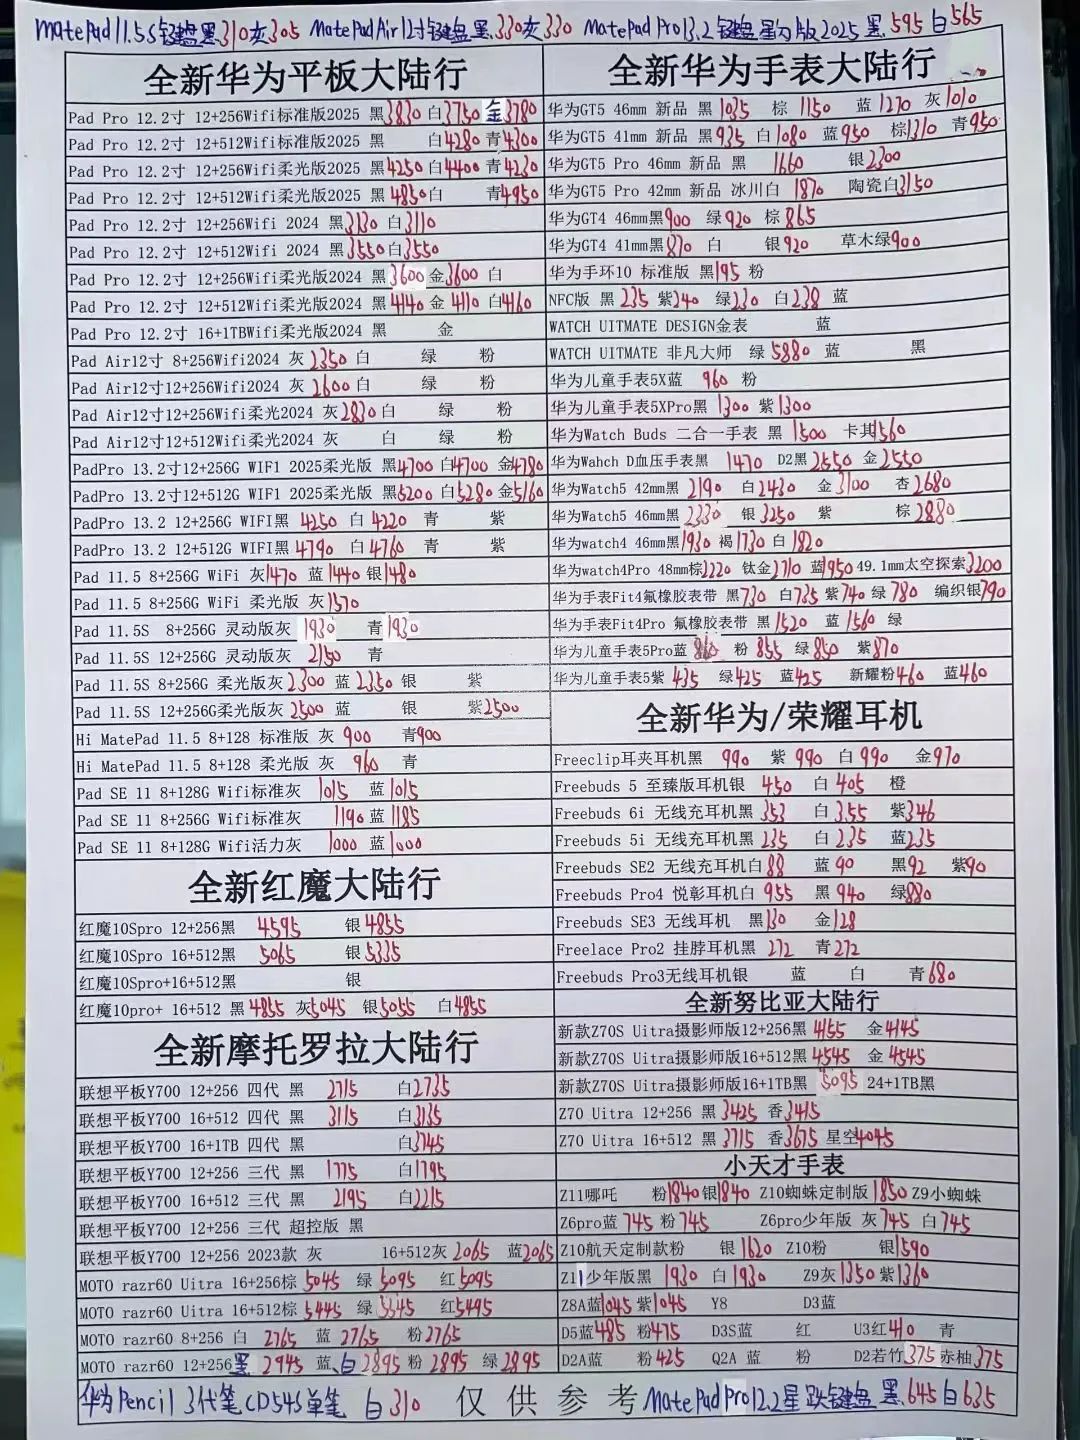 MatePad 11.5S键盘黑310灰305 MatePad Air12寸键盘黑330灰330 MatePad Pro13.2键盘星灼版2025黑595白565
全新华为平板大陆行
Pad Pro 12.2寸 12+256Wifi标准版2025 黑3830 白3750 金3780
Pad Pro 12.2寸 12+512Wifi标准版2025 黑 白4280 青4300
Pad Pro 12.2寸 12+256Wifi柔光版2025 黑4250 白4400 青4230
Pad Pro 12.2寸 12+512Wifi柔光版2025 黑4850 白 青4950
Pad Pro 12.2寸 12+256Wifi 2024 黑3130 白3110
Pad Pro 12.2寸 12+512Wifi 2024 黑3550 白3550
Pad Pro 12.2寸 12+256Wifi柔光版2024 黑3600 金3600 白
Pad Pro 12.2寸 12+512Wifi柔光版2024 黑4140 金4110 白4160
Pad Pro 12.2寸 16+1TBWifi柔光版2024 黑 金
Pad Air12寸 8+256Wifi2024 灰2350 白 绿 粉
Pad Air12寸12+256Wifi2024 灰2600 白 绿 粉
Pad Air12寸12+256Wifi柔光2024 灰2830 白 绿 粉
Pad Air12寸12+512Wifi柔光2024 灰 白 绿 粉
PadPro 13.2寸12+256G WIFI 2025柔光版 黑4700 白4700 金4780
PadPro 13.2寸12+512G WIFI 2025柔光版 黑5200 白5280 金5160
PadPro 13.2 12+256G WIFI黑 4250 白 4220 青 紫
PadPro 13.2 12+512G WIFI黑 4790 白 4760 青 紫
Pad 11.5 8+256G WiFi 灰1470 蓝1440 银1480
Pad 11.5 8+256G WiFi 柔光版 灰1570
Pad 11.5S 8+256G 灵动版灰 1930 青1930
Pad 11.5S 12+256G 灵动版灰 2150 青
Pad 11.5S 8+256G 柔光版灰2300 蓝2350 银 紫
Pad 11.5S 12+256G柔光版灰 2500 蓝 银 紫2500
Hi MatePad 11.5 8+128 标准版 灰 900 青900
Hi MatePad 11.5 8+128 柔光版 灰 960 青
Pad SE 11 8+128G Wifi标准灰 1015 蓝1015
Pad SE 11 8+256G Wifi标准灰 1190 蓝1185
Pad SE 11 8+128G Wifi活力灰 1000 蓝1000
全新红魔大陆行
红魔10Spro 12+256黑 4595 银4855
红魔10Spro 16+512黑 5065 银5335
红魔10Spro+16+512黑 银
红魔10pro+ 16+512 黑4855 灰5045 银5055 白4855
全新摩托罗拉大陆行
联想平板Y700 12+256 四代 黑 2715 白2735
联想平板Y700 16+512 四代 黑 3115 白3135
联想平板Y700 16+1TB 四代 黑 白3745
联想平板Y700 12+256 三代 黑 1775 白1795
联想平板Y700 16+512 三代 黑 2195 白2215
联想平板Y700 12+256 三代 超控版 黑
联想平板Y700 12+256 2023款 灰 16+512灰2065 蓝2065
MOTO razr60 Uitra 16+256棕5045 绿5095 红5095
MOTO razr60 Uitra 16+512棕5445 绿 红5495
MOTO razr60 8+256 白 2765 蓝 2765 粉2765
MOTO razr60 12+256黑 2945 蓝、白2895 粉 2895 绿2895
全新华为手表大陆行
华为GT5 46mm 新品 黑 1035 棕 1150 蓝1270 灰1010
华为GT5 41mm 新品 黑935 白1080 蓝950 棕1310 青950
华为GT5 Pro 46mm 新品 黑 1660 银2300
华为GT5 Pro 42mm 新品 冰川白 1870 陶瓷白3150
华为GT4 46mm黑900 绿920 棕865
华为GT4 41mm黑870 白 银920 草木绿900
华为手环10 标准版 黑195 粉
NFC版 黑 235 紫240 绿230 白238 蓝
WATCH UITMATE DESIGN金表 蓝
WATCH UITMATE 非凡大师 绿5880 蓝 黑
华为儿童手表5X蓝 960 粉
华为儿童手表5XPro黑 1300 紫1300
华为Watch Buds 二合一手表 黑 1500 卡其1560
华为Wahch D血压手表黑 1470 D2黑2550 金2550
华为Watch5 42mm黑 2190 白2430 金3100 杏2680
华为Watch5 46mm黑 2330 银3250 紫 棕2880
华为watch4 46mm黑1930 褐1730 白1820
华为watch4Pro 48mm棕2220 钛金2710 蓝1950 49.1mm太空探索3200
华为手表Fit4氟橡胶表带 黑730 白735 紫740 绿780 编织银790
华为手表Fit4Pro 氟橡胶表带 黑1520 蓝1560 绿
华为儿童手表5Pro蓝 粉 855 绿850 紫870
华为儿童手表5紫 435 绿425 蓝425 新耀粉460 蓝460
全新华为/荣耀耳机
Freeclip耳夹耳机黑 990 紫 990 白 990 金970
Freebuds 5 至臻版耳机银 450 白 405 橙
Freebuds 6i 无线充耳机黑 353 白 355 紫346
Freebuds 5i 无线充耳机黑 235 白 235 蓝235
Freebuds SE2 无线充耳机白88 蓝 90 黑92 紫90
Freebuds Pro4 悦彰耳机白 955 黑 940 绿880
Freebuds SE3 无线耳机 黑130 金128
Freelace Pro2 挂脖耳机黑 272 青272
Freebuds Pro3无线耳机银 蓝 白 青680
全新努比亚大陆行
新款Z70S Uitra摄影师版12+256黑 4155 金4145
新款Z70S Uitra摄影师版16+512黑4545 金 4545
新款Z70S Uitra摄影师版16+1TB黑 5095 24+1TB黑
Z70 Uitra 12+256 黑 3425 香3415
Z70 Uitra 16+512 黑 3715 香3675 星空4045
小天才手表
Z11哪吒 粉1840银1840 Z10蜘蛛定制版1850 Z9小蜘蛛
Z6pro蓝 745 粉745 Z6pro少年版 灰745 白745
Z10航天定制款粉 银1620 Z10粉 银1590
Z11少年版黑 1930 白1930 Z9灰1350 紫1360
Z8A蓝1045 紫1045 Y8 D3蓝
D5蓝485 粉475 D3S蓝 红 U3红410 青
D2A蓝 粉425 Q2A 蓝 粉 D2若竹375 赤柚375
华为Pencil 3代笔CD54S单笔 白310 仅供参考 MatePad Pro12.2星跃键盘 黑645白635